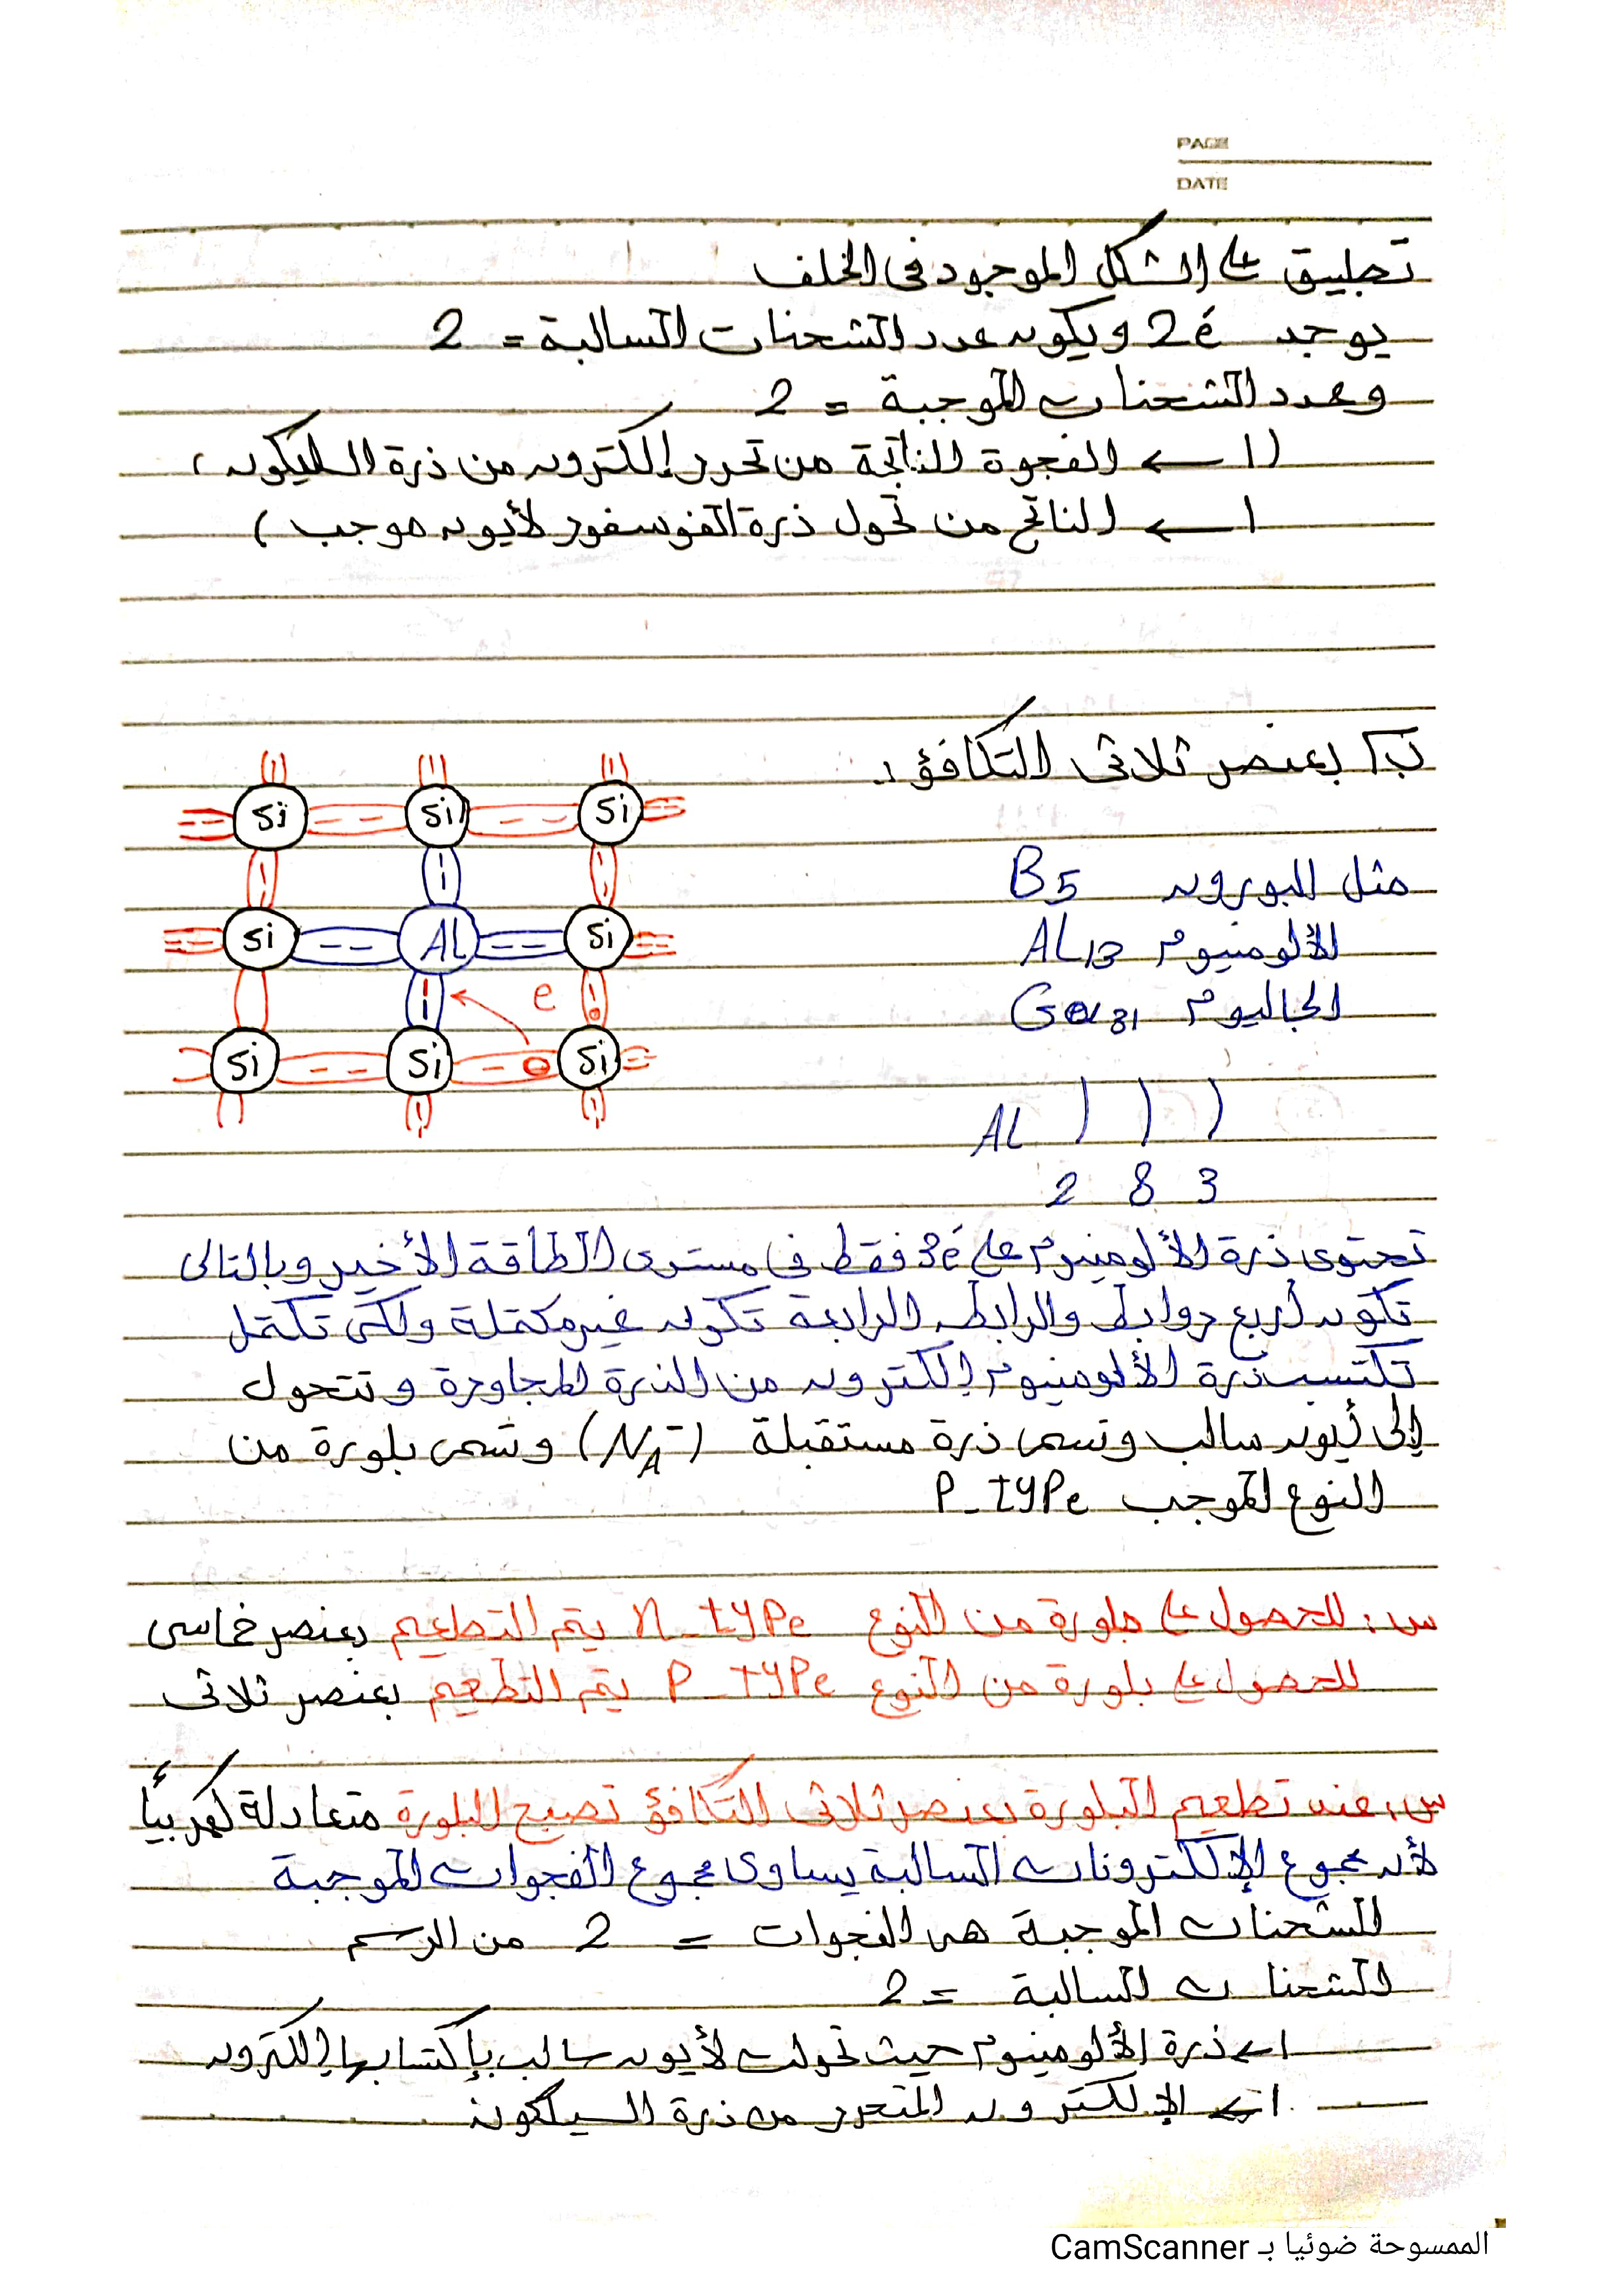 PAGE
DATE
تطبيق على الشكل الموجود فى الخلف
يوجد 2é ويكون عدد الشحنات السالبة = 2
وعدد الشحنات الموجبة = 2
(1 ← الفجوة الناتجة من تحرر إلكترون من ذرة السليكون ،
1 ← الناتج من تحول ذرة الفوسفور لأيون موجب )
ب] بعنصر ثلاثى التكافؤ :
مثل البورون B5
الألومنيوم AL13
الجاليوم Ga31
Si Si Si
Si AL Si
e
Si Si Si
AL ) ) )
2 8 3
تحتوى ذرة الألومنيوم على 3é فقط فى مستوى الطاقة الأخير وبالتالى
تكون أربع روابط والرابطة الرابعة تكون غير مكتملة ولكى تكتمل
تكتسب ذرة الألومنيوم إلكترون من الذرة المجاورة وتتحول
إلى أيون سالب وتسمى ذرة مستقبلة (NA-) وتسمى بلورة من
النوع الموجب P-type
س: للحصول على بلورة من النوع n-type يتم التطعيم بعنصر خماسى
للحصول على بلورة من النوع P-type يتم التطعيم بعنصر ثلاثى
س: عند تطعيم البلورة بعنصر ثلاثى التكافؤ تصبح البلورة متعادلة كهربياً
لأن مجموع الإلكترونات السالبة يساوى مجموع الفجوات الموجبة
الشحنات الموجبة هى الفجوات = 2 من الرسم
الشحنات السالبة = 2
1 ← ذرة الألومنيوم حيث تحولت لأيون سالب بإكتسابها إلكترون
1 ← الإلكترون المتحرر من ذرة السيلكون
الممسوحة ضوئيا بـ CamScanner